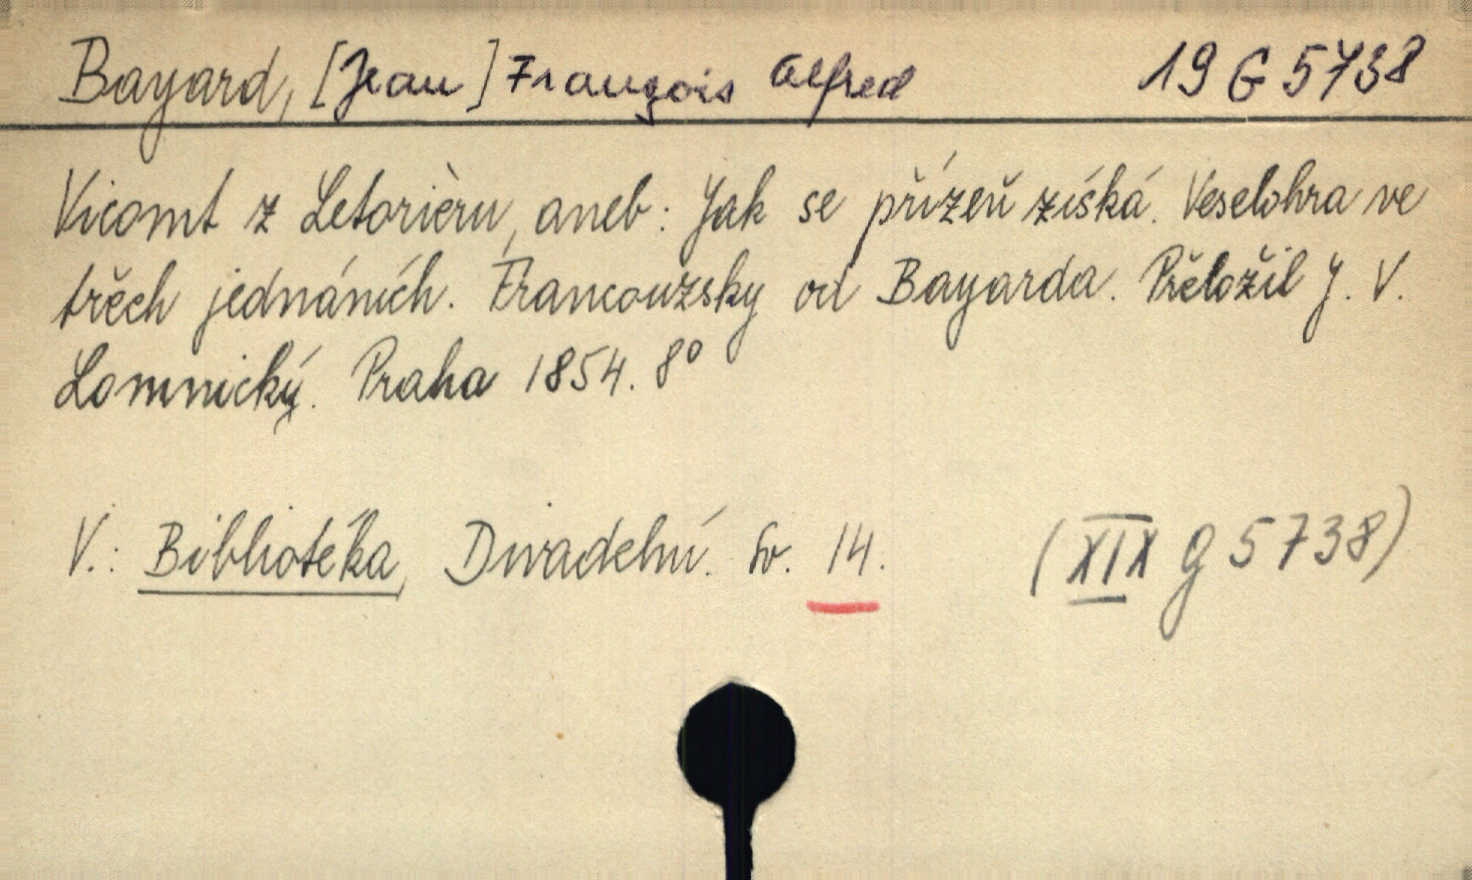 Bayard, [Jean] François Alfred 19 G 5738
Vicomt z Letorièru, aneb: Jak se přízeň získá. Veselohra ve
třech jednáních. Francouzsky od Bayarda. Přeložil J. V.
Lomnický. Praha 1854. 8°
V.: Bibliotéka, Divadelní. Sv. 14. (XIX G 5738)